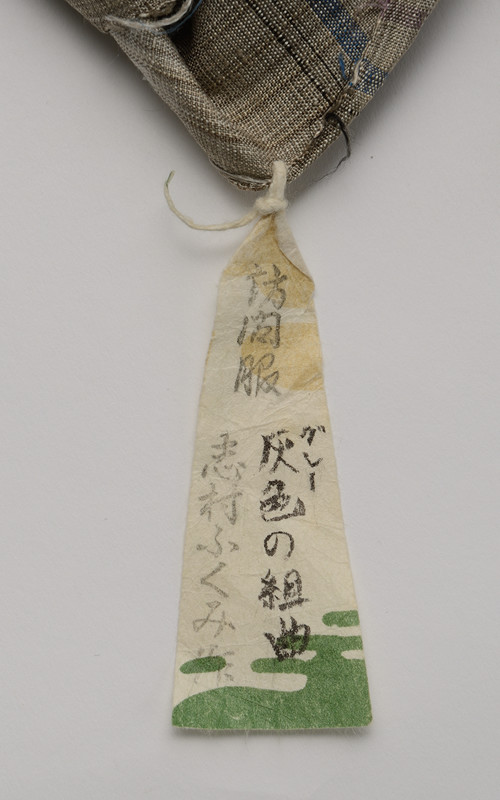 訪問服
グレー
灰色の組曲
志村ふくみ作